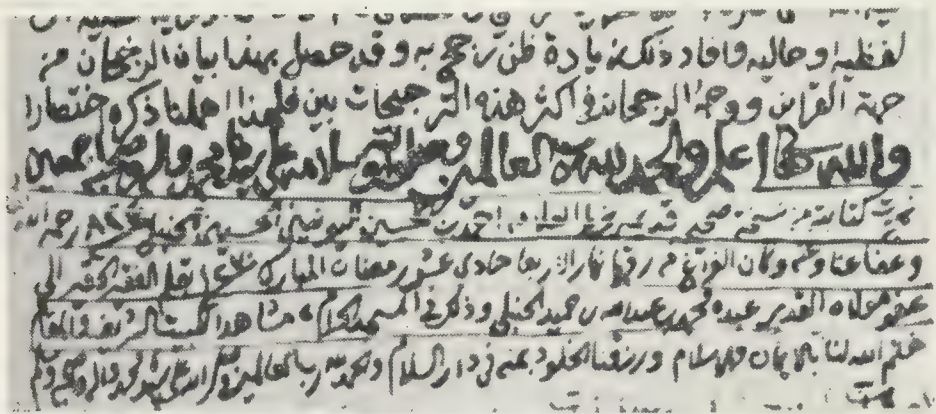 لفظيه او حاليه وافاد ذلك زيادة ظن رجح به وقد حصل بهذا بيان الرجحان من
جهة القرائن ووجه الرجحان في اكثر هذه الترجيحات بين فلهذا اهملنا ذكره اختصارا
والله تعالى اعلم والحمد لله رب العالمين وصلى الله وسلم على محمد واله وصحبه اجمعين
تمت كتابة من نسخة صحيحة قديمة بخط احمد بن الحنبلي رحمه الله
وعفا عنا وعنه وكان الفراغ من رقمها نهار الاربعا حادي عشر رمضان المبارك بقلم الفقير الحقير الى
عفو مولاه القدير عبده محمد بن عبد الله بن حميد الحنبلي وذلك في المسجد الحرام مشاهدا لبيت الشريف والمقام
ختم الله لنا بالايمان والاسلام ورزقنا الخلود بمنه في دار السلام والحمد لله رب العالمين وصلى الله على سيدنا محمد واله وصحبه وسلم